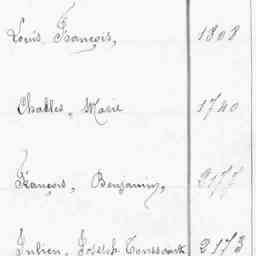 Louis François, 1808
Charles, Marie 1740
François, Benjamin, 2177
Julien, Joseph Toussaint 2173